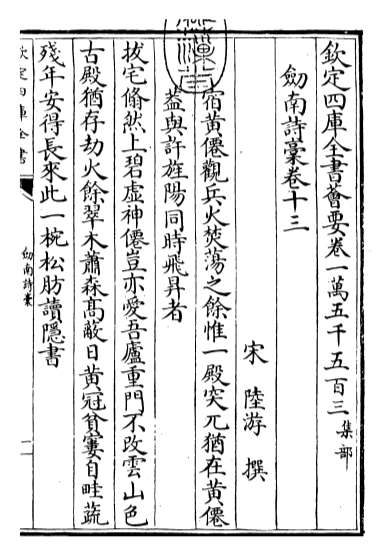 欽定四庫全書薈要卷一萬五千五百三 集部
劒南詩稾卷十三
宋 陸游 撰
宿黃僊觀兵火焚蕩之餘惟一殿突兀猶在黃僊
葢與許旌陽同時飛昇者
拔宅翛然上碧虛神僊豈亦愛吾廬重門不改雲山色
古殿猶存劫火餘翠木蕭森髙蔽日黃冠貧窶自畦蔬
殘年安得長來此一椀松肪讀隱書
欽定四庫全書
劒南詩稾